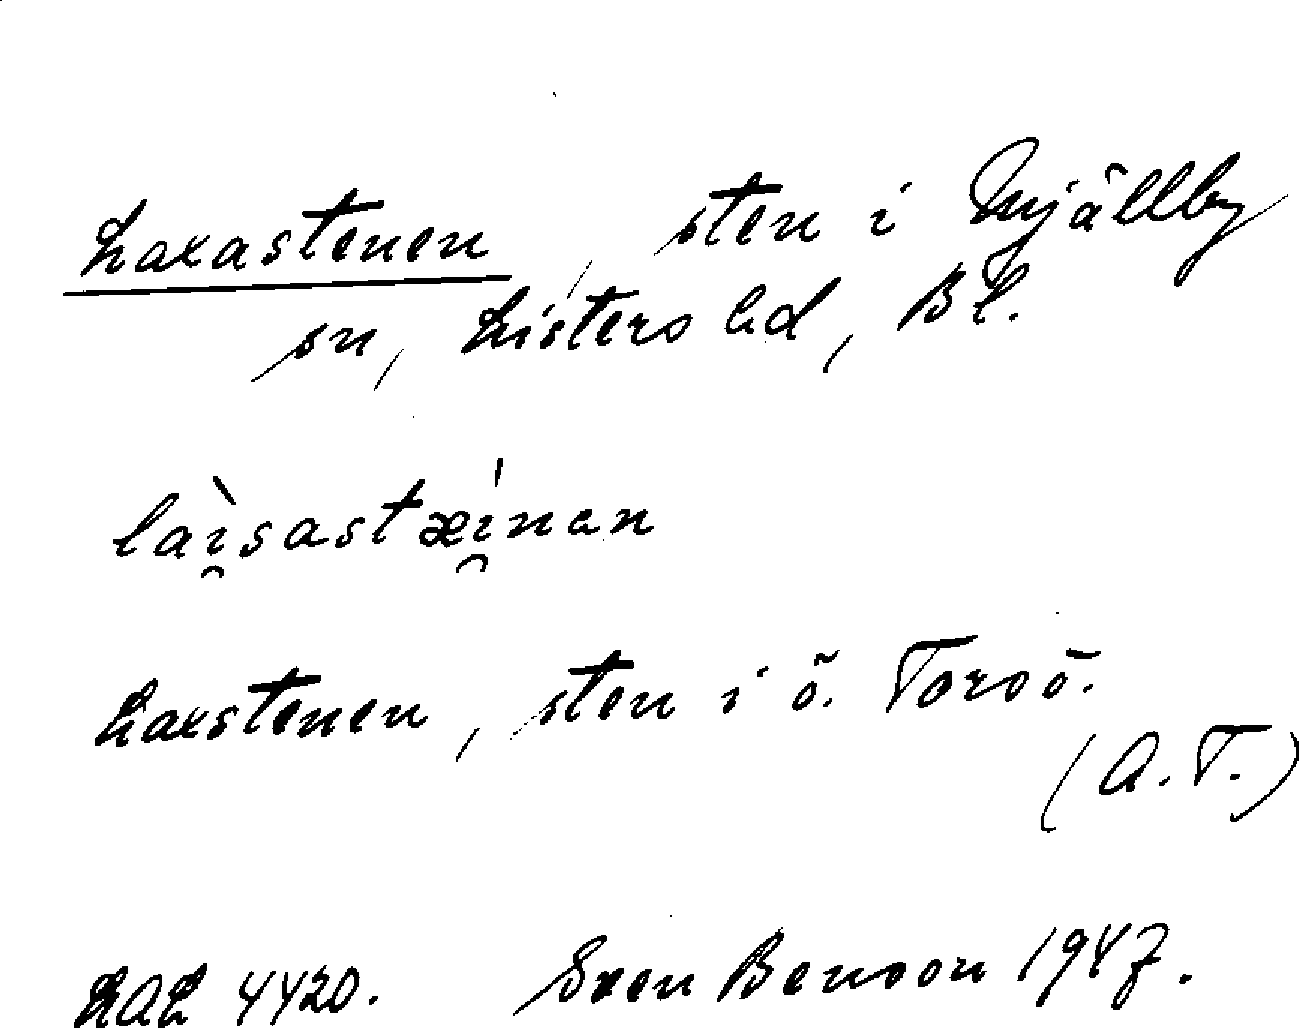 Laxastenen, sten i Mjällby
sn, Listers hd, Bl.
laì̯sastæí̯nan
Laxstenen, sten i ö. Torsö.
(A. T.)
LAL 4420. Sven Benson 1947.